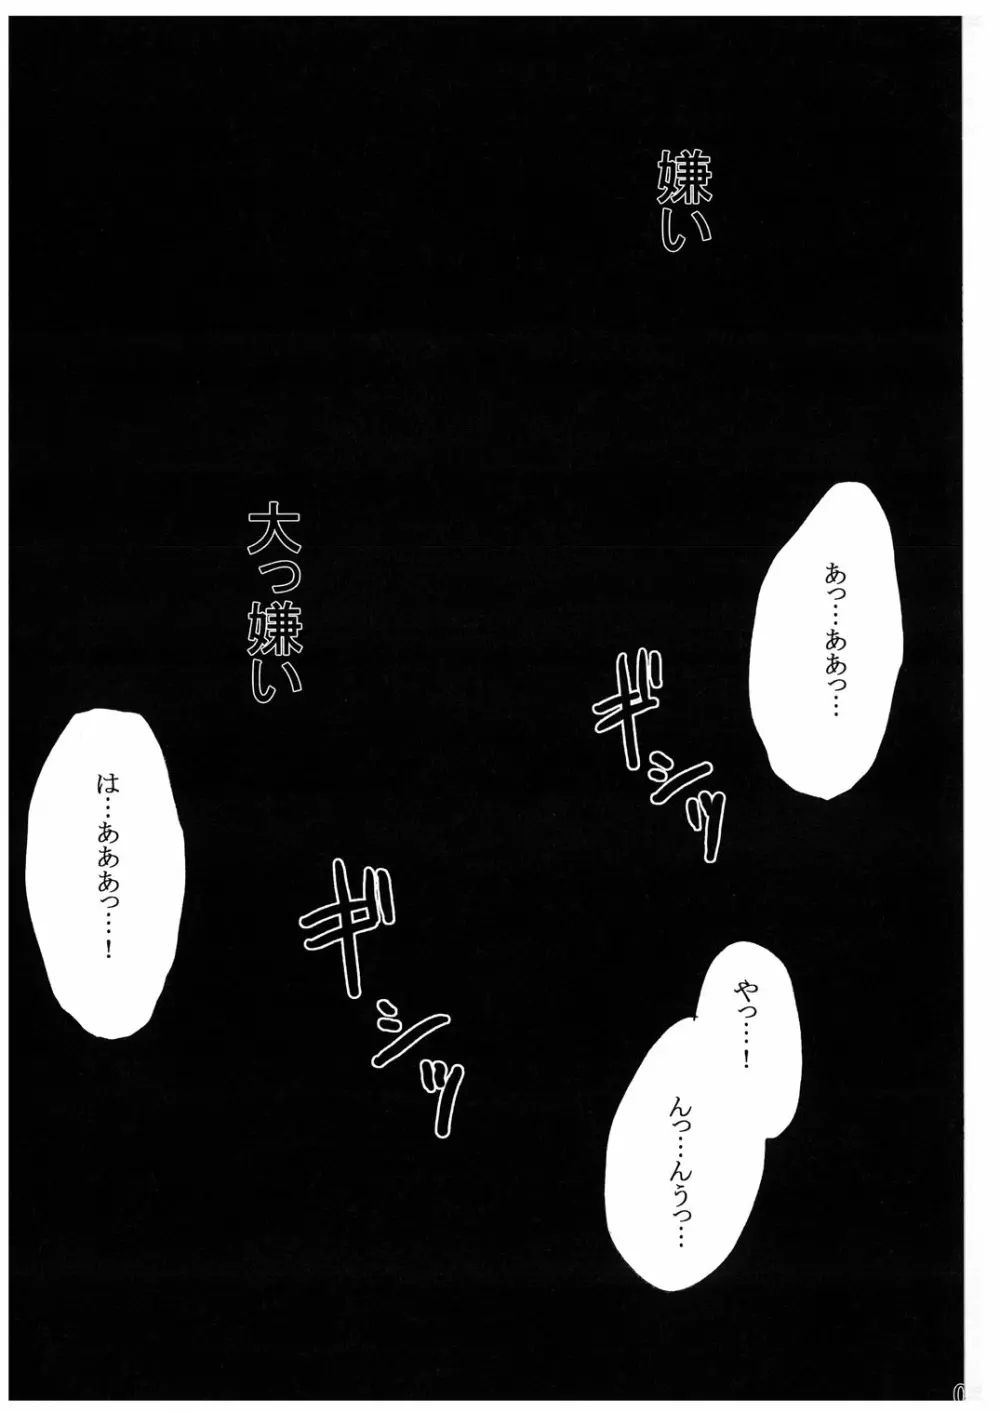 嫌い
あっ…ああっ…
ギシッ
やっ…！
んっ…んうっ…
大っ嫌い
ギシッ
は…あああっ…！
0